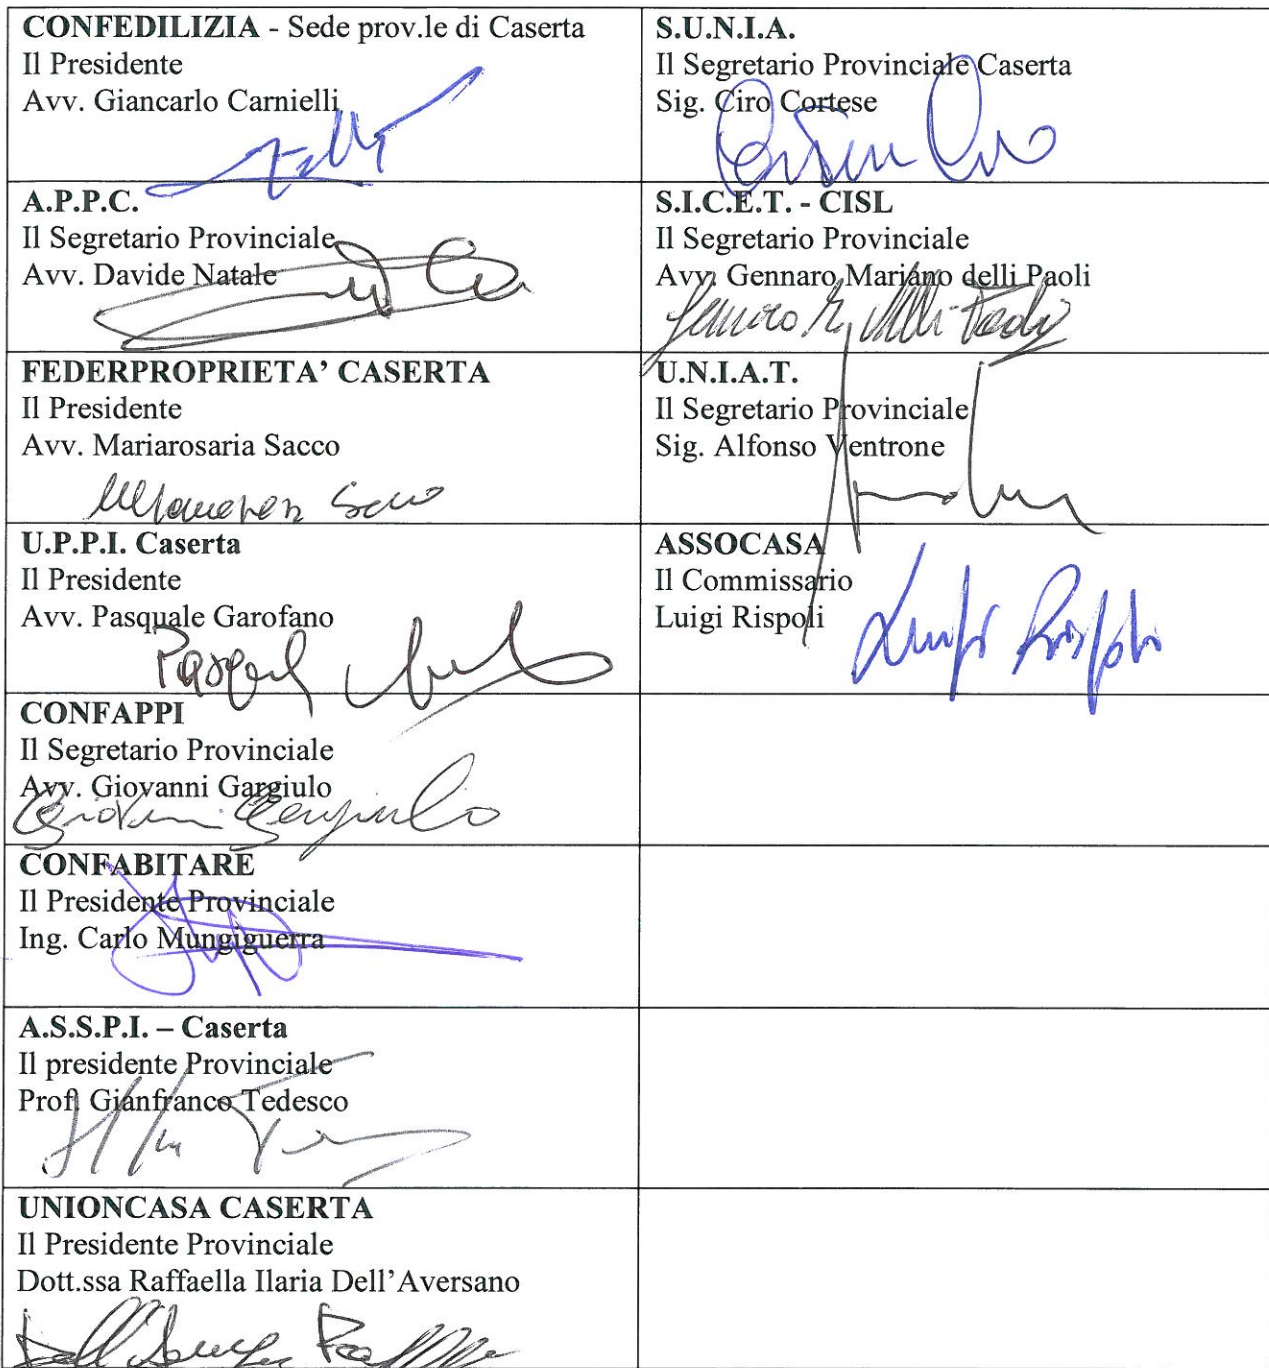 CONFEDILIZIA - Sede prov.le di Caserta
Il Presidente
Avv. Giancarlo Carnielli
S.U.N.I.A.
Il Segretario Provinciale Caserta
Sig. Ciro Cortese
A.P.P.C.
Il Segretario Provinciale
Avv. Davide Natale
S.I.C.E.T. - CISL
Il Segretario Provinciale
Avv. Gennaro Mariano delli Paoli
FEDERPROPRIETA’ CASERTA
Il Presidente
Avv. Mariarosaria Sacco
U.N.I.A.T.
Il Segretario Provinciale
Sig. Alfonso Ventrone
U.P.P.I. Caserta
Il Presidente
Avv. Pasquale Garofano
ASSOCASA
Il Commissario
Luigi Rispoli
Luigi Rispoli
CONFAPPI
Il Segretario Provinciale
Avv. Giovanni Gargiulo
Giovanni Gargiulo
CONFABITARE
Il Presidente Provinciale
Ing. Carlo Mungiguerra
A.S.S.P.I. – Caserta
Il presidente Provinciale
Prof. Gianfranco Tedesco
UNIONCASA CASERTA
Il Presidente Provinciale
Dott.ssa Raffaella Ilaria Dell’Aversano